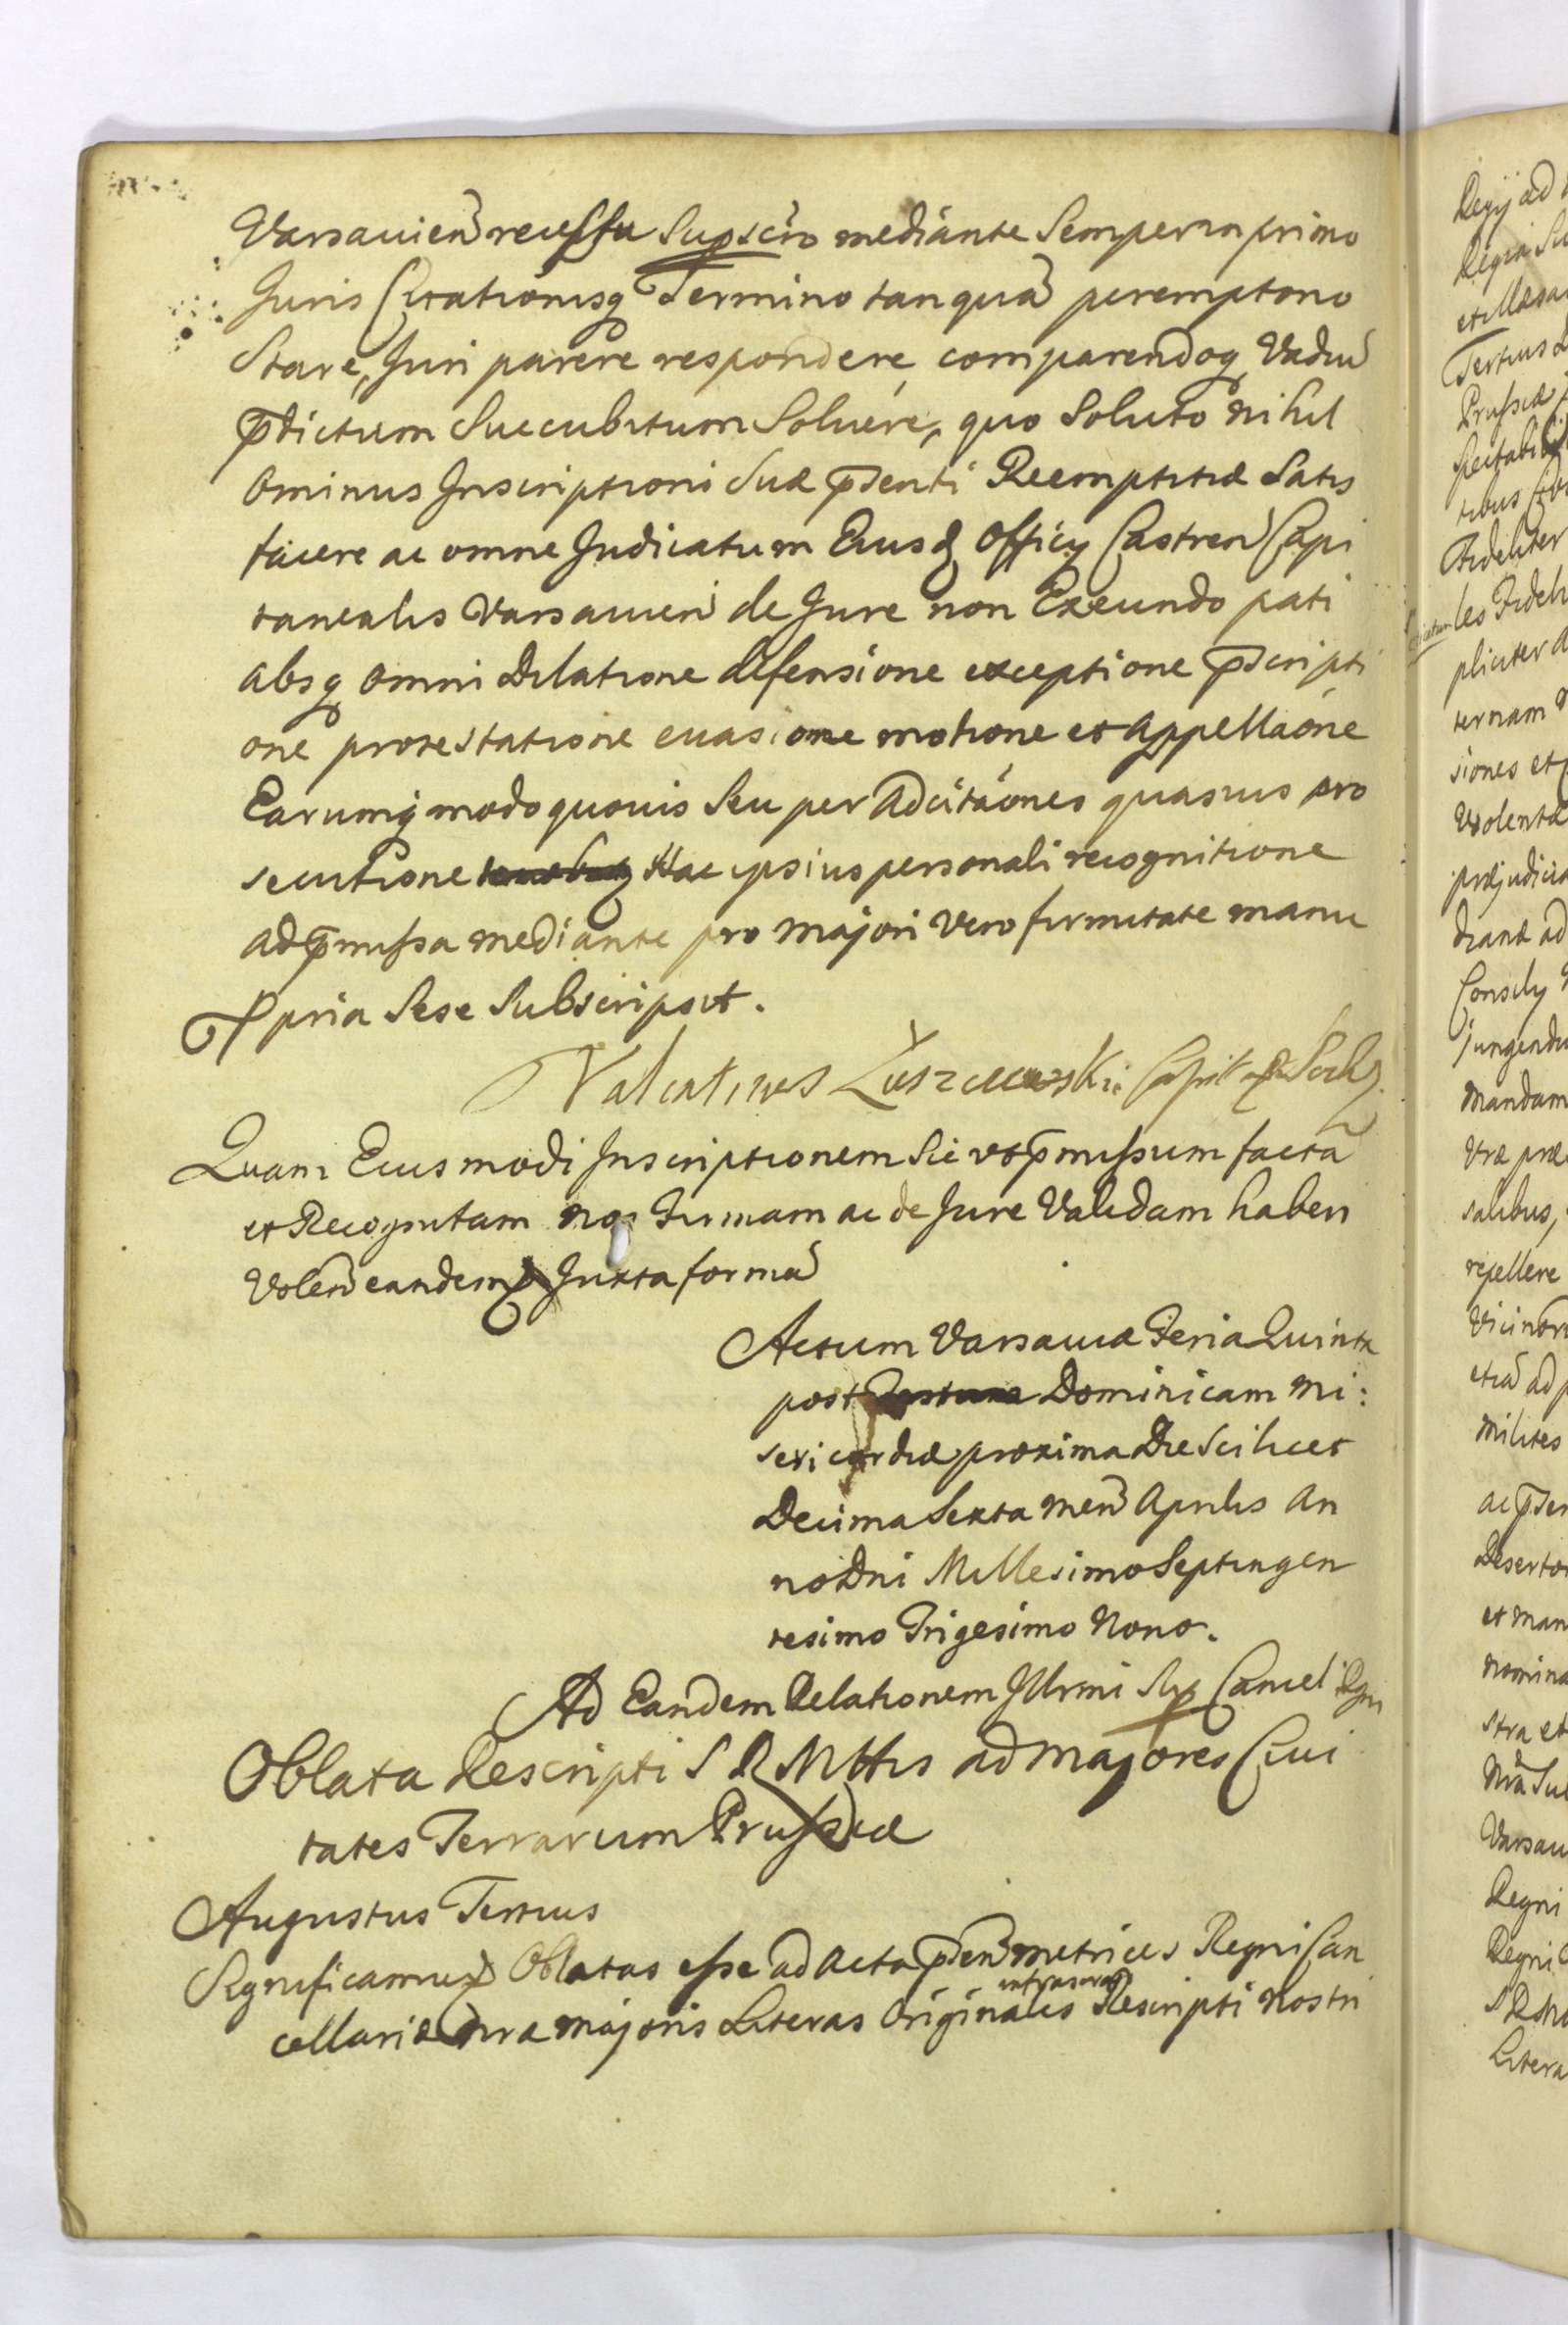 Varsavien recessu supscro mediante Semper in primo
Juris Citationisq Termino tanquã peremptorio
Stare, Juri parere respondere, comparendoq, Vadiũ
p̃dictum Succubitum Solvere, quo Soluto nihil
ominus Inscriptioni Suæ p̃senti Reemptitiæ Satis
facere ac omne Judicatum Eiusd Officij Castren Capi
tanealis Varsavien de Jure non Exeundo pati
absq omni Dilatione defensione exceptione p̃scripti
one protestatione evasione motione et Appellaone
Earumq modo quovis Seu per Adcitaones quasvis pro
secutione Hac ipsius personali recognitione
ad p̃missa mediante pro majori Vero firmitate manu
ppria Sese Subscripsit.
Valentinus Capit
Quam Eiusmodi Inscriptionem Sic ut p̃missum factã
et Recognitam nos Firmam ac de Jure Validam haberi
Volen eandem Juxta formã
Actum Varsaviæ Feria Quinta
post Dominicam Mi:
sericordiæ proxima Die Scilicet
Decima Sexta Men Aprilis An
no Dni Millesimo Septingen
tesimo Trigesimo Nono.
Ad Eandem Relationem Illrmi Sup Cancel Rgni
Oblata Rescripti S R Mttis ad majores Civi
tates Terrarum Prussiæ
Augustus Tertius
Significamus Oblatas esse ad Acta p̃sen metrices Regni Can
infrascrip
cellariæ nra majoris Literas Originales Rescripti Nostri
Regij ad
Regia
Tertius
Prussiæ
tribus
Fideliter
les Fideli
pliciter
ternam
siones et
Violenta
præjudicia
ad
Consily
jungendu
Mandam
Vræ præ
salibus,
repellere
etiã ad
Milites
ac p̃sen
Desertor
et man
Nomina
stra et
Nrã Su
Varsavi
Regni
Regni
S R M
Litera